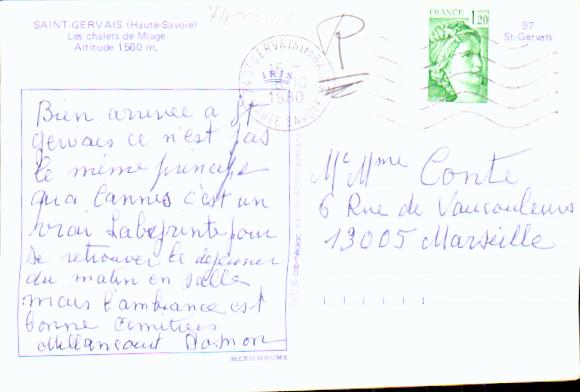 SAINT-GERVAIS (Haute-Savoie)
Les chalets de Miage
Altitude 1560 m.
R
FRANCE
1,20
97
St-Gervais
1980
HAUTE SAVOIE
IRIS
Bien arrivée a St
gervais ce n'est pas
le même principe
qu'a Cannes c'est un
vrai Labyrinte pour
se retrouver le dejeuner
du matin en salle
mais l'ambiance est
bonne Amitiées
Mr Mme Conte
6 Rue de Vaucouleurs
13005 Marseille
MEXICHROME